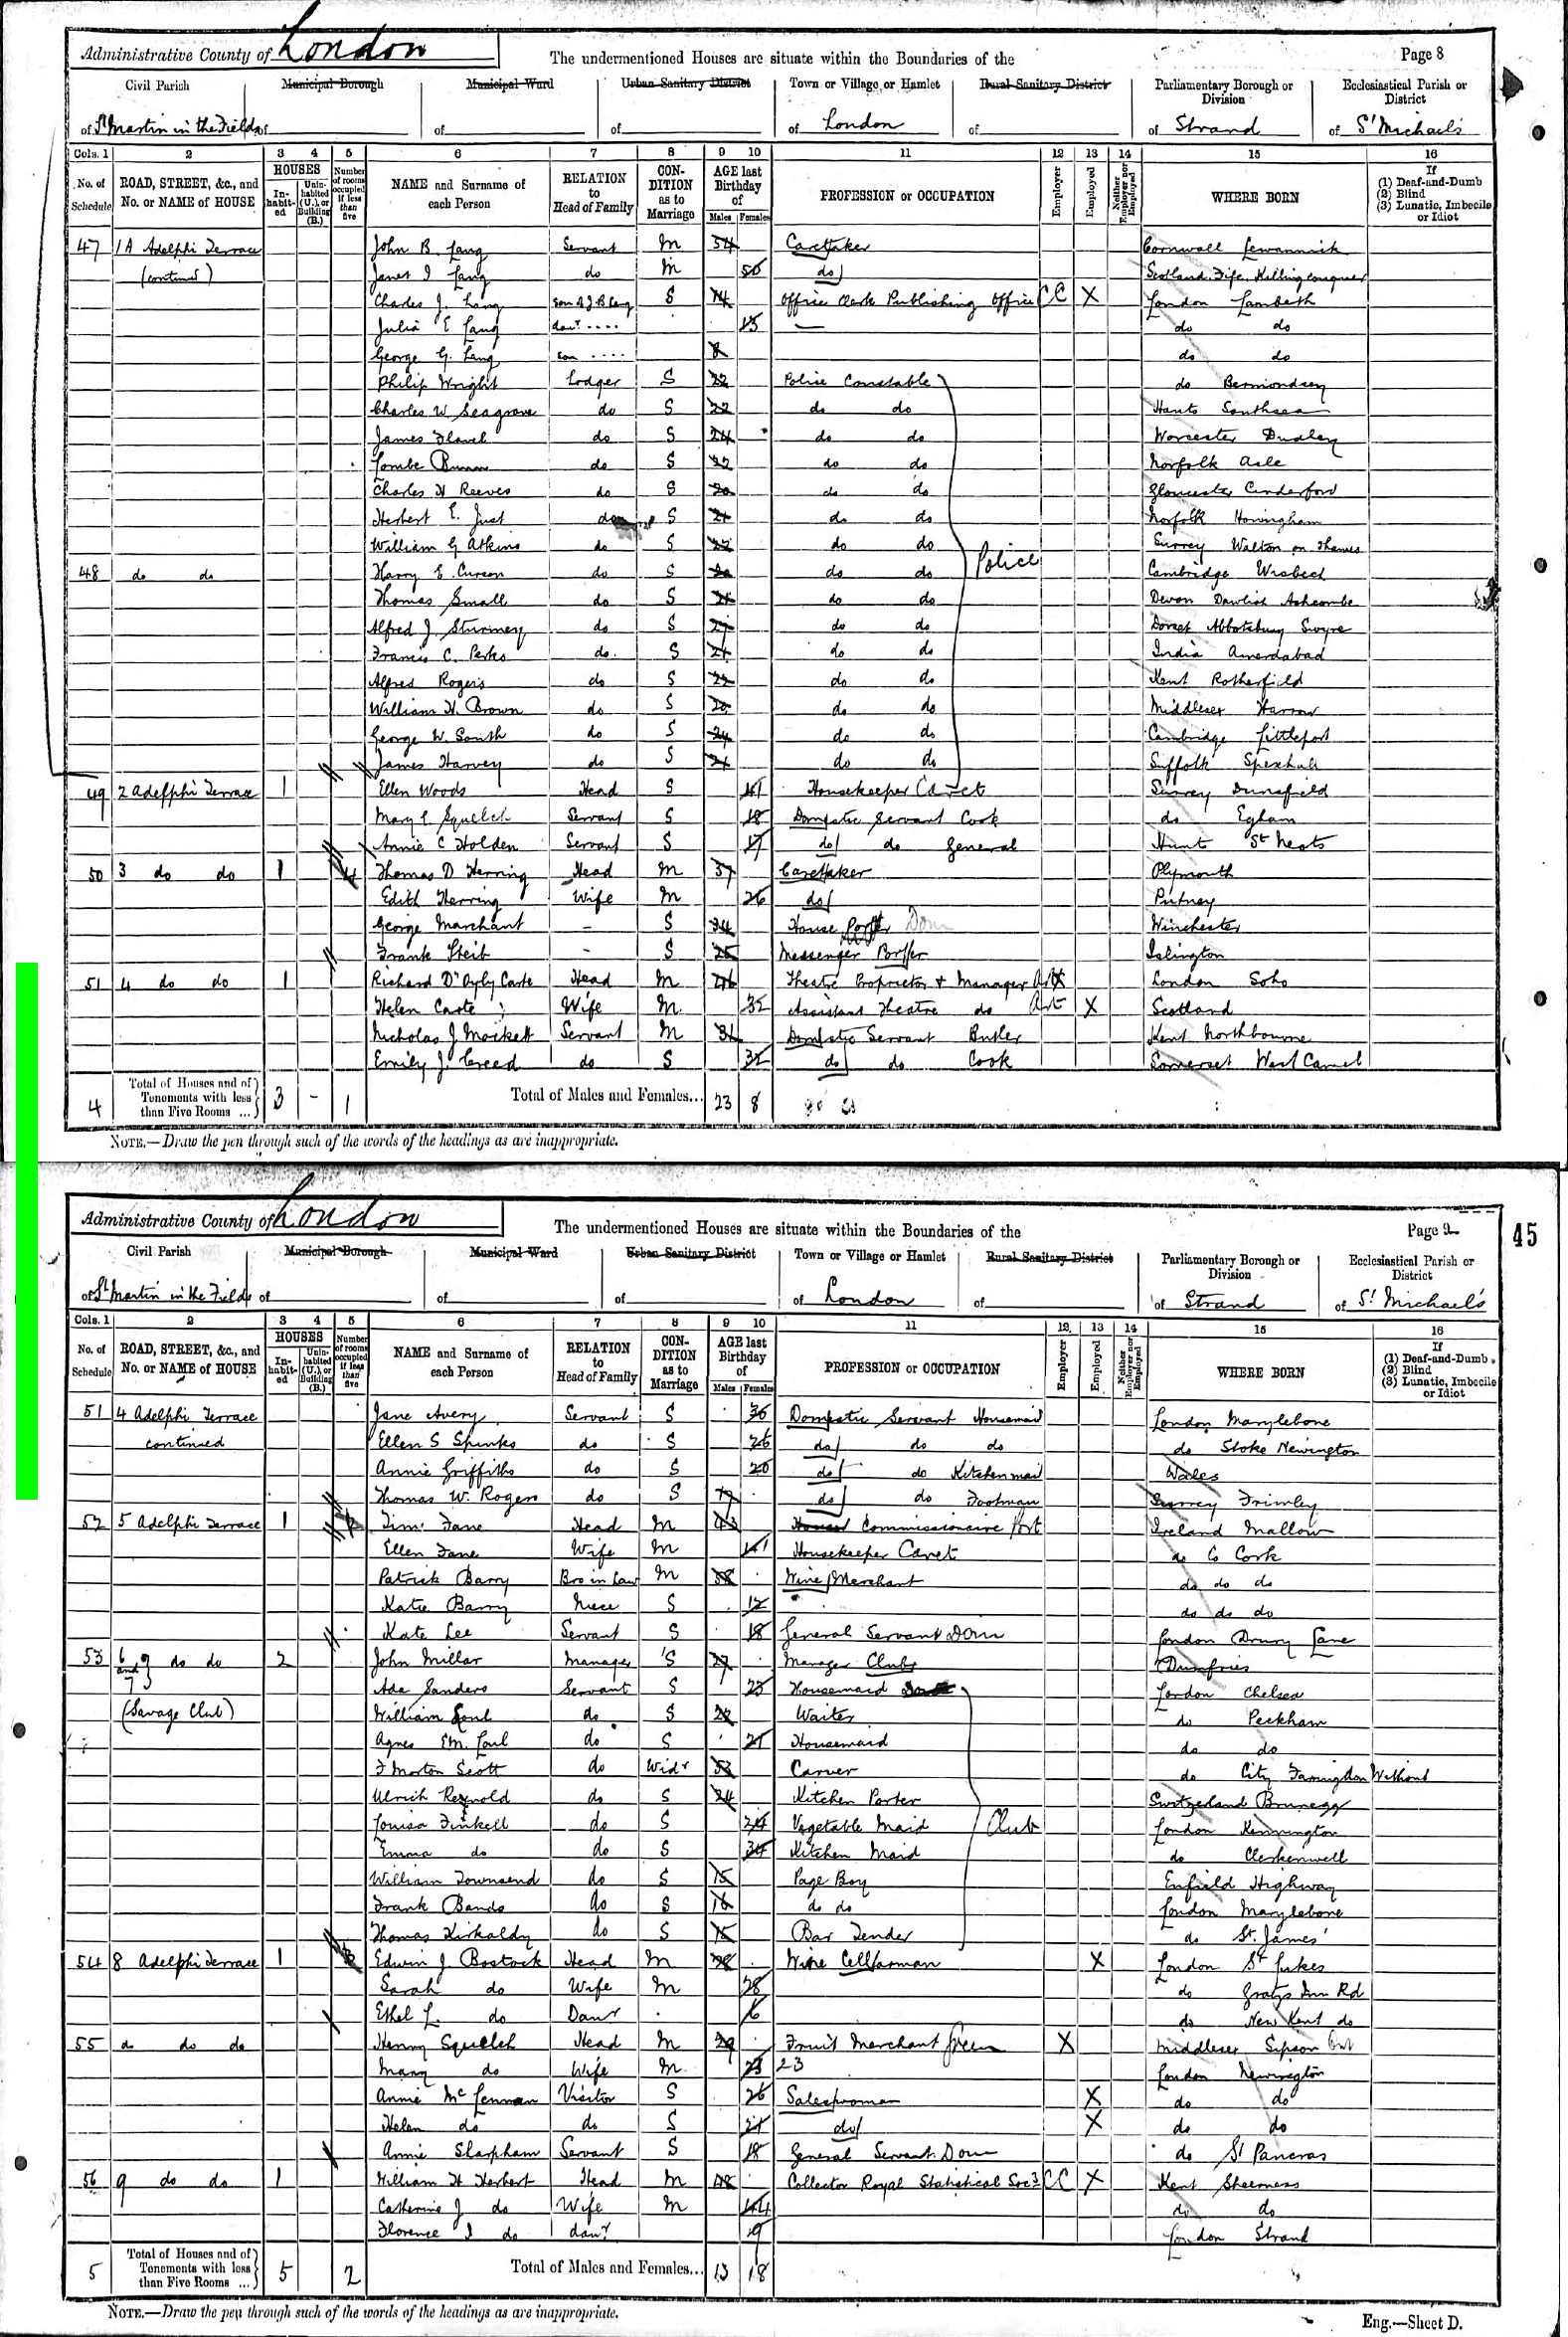 Administrative County of London
The undermentioned Houses are situate within the Boundaries of the
Page 8
Civil Parish Municipal Borough Municipal Ward Urban Sanitary District Town or Village or Hamlet Rural Sanitary District Parliamentary Borough or Division Ecclesiastical Parish or District
of St Martin in the Fields of of of of London of of Strand of St Michael's
Cols. 1 2 3 4 5 6 7 8 9 10 11 12 13 14 15 16
No. of Schedule ROAD, STREET, &c., and No. or NAME of HOUSE HOUSES Inhabited Uninhabited (U.), or Building (B.) Number of rooms occupied if less than five NAME and Surname of each Person RELATION to Head of Family CONDITION as to Marriage AGE last Birthday of Males Females PROFESSION or OCCUPATION Employer Employed Neither Employer nor Employed WHERE BORN If (1) Deaf-and-Dumb (2) Blind (3) Lunatic, Imbecile or Idiot
47 1A Adelphi Terrace John B. Lang Servant M 54 Caretaker Cornwall Lewannick
(continued) Janet I Lang do M 50 do Scotland Fife Kilconquer
Charles J. Lang son of J B Lang S 14 Office Clerk Publishing Office CC X London Lambeth
Julia E Lang daur 13 — do do
George G. Lang son 8 do do
Philip Wright Lodger S 22 Police Constable do Bermondsey
Charles W. Seagrave do S 22 do do Hants Southsea
James Flavel do S 24 do do Worcester Dudley
Lombe do S 22 do do Norfolk Acle
Charles H Reeves do S 20 do do Gloucester Cinderford
Herbert E. Just do S 21 do do Norfolk Honingham
William G Atkins do S 22 do do Surrey Walton on Thames
48 do do Harry E. Curson do S 20 do do Police Cambridge Wisbech
Thomas Small do S 21 do do Devon Dawlish Ashcombe
Alfred J. Sturmey do S 21 do do Dorset Abbotsbury Swyre
Francis C. Perks do S 21 do do India Amerdabad
Alfred Rogers do S 22 do do Kent Rotherfield
William H. Brown do S 20 do do Middlesex Harrow
George W. South do S 24 do do Cambridge Littleport
James Harvey do S 21 do do Suffolk Spexhall
49 2 Adelphi Terrace 1 Ellen Woods Head S 41 Housekeeper Caret Surrey Dunsfield
Mary E Squelch Servant S 18 Domestic Servant Cook do Egham
Annie C Holden Servant S 17 do do General Hunt St Neots
50 3 do do 1 4 Thomas D Herring Head M 37 Caretaker Plymouth
Edith Herring Wife M 26 do Putney
George Marchant - S 34 House Porter Dom Winchester
Frank Steib - S 25 Messenger Porter Islington
51 4 do do 1 Richard D'Oyly Carte Head M 46 Theatre Proprietor & Manager Art X London Soho
Helen Carte Wife M. 32 Assistant Theatre do Art X Scotland
Nicholas J Mockett Servant M 31 Domestic Servant Butler Kent Northbourne
Emily J. Creed do S 32 do do Cook Somerset West Camel
4 Total of Houses and of Tenements with less than Five Rooms ... 3 - 1 Total of Males and Females... 23 8
NOTE.—Draw the pen through such of the words of the headings as are inappropriate.
Administrative County of London
The undermentioned Houses are situate within the Boundaries of the
Page 9
45
Civil Parish Municipal Borough Municipal Ward Urban Sanitary District Town or Village or Hamlet Rural Sanitary District Parliamentary Borough or Division Ecclesiastical Parish or District
of St Martin in the Fields of of of of London of of Strand of St Michael's
Cols. 1 2 3 4 5 6 7 8 9 10 11 12 13 14 15 16
No. of Schedule ROAD, STREET, &c., and No. or NAME of HOUSE HOUSES Inhabited Uninhabited (U.), or Building (B.) Number of rooms occupied if less than five NAME and Surname of each Person RELATION to Head of Family CONDITION as to Marriage AGE last Birthday of Males Females PROFESSION or OCCUPATION Employer Employed Neither Employer nor Employed WHERE BORN If (1) Deaf-and-Dumb (2) Blind (3) Lunatic, Imbecile or Idiot
51 4 Adelphi Terrace Jane Avery Servant S 36 Domestic Servant Housemaid London Marylebone
continued Ellen S Spinks do S 26 do do do do Stoke Newington
Annie Griffiths do S 20 do do Kitchenmaid Wales
Thomas W. Rogers do S 19 do do Footman Surrey Frimley
52 5 Adelphi Terrace 1 Tim. Fane Head M 43 Commissionaire Port Ireland Mallow
Ellen Fane Wife M 41 Housekeeper Caret do Co Cork
Patrick Barry Bro in Law M 38 Wine Merchant do do do
Katie Barry Niece S 12 do do do
Kate Lee Servant S 18 General Servant Dom London Drury Lane
53 6 and 7 do do 2 John Millar Manager S 27 Manager Club Dumfries
Ada Sanders Servant S 23 Housemaid London Chelsea
(Savage Club) William Coul do S 22 Waiter do Peckham
Agnes Em. Coul do S 21 Housemaid do do
F Morton Scott do Widr 53 Carver do City Farringdon Without
Ulrich Reynold do S 24 Kitchen Porter Switzerland Brunegg
Louisa Finkell do S 24 Vegetable Maid Club London Kennington
Emma do do S 34 Kitchen Maid do Clerkenwell
William Townsend do S 15 Page Boy Enfield Highway
Frank Bands do S 16 do do London Marylebone
Thomas Kirkaldy do S 15 Bar Tender do St. James'
54 8 Adelphi Terrace 1 3 Edwin J Bostock Head M 28 Wine Cellarman X London St Lukes
Sarah do Wife M 28 do Grays Inn Rd
Ethel L. do Daur 6 do New Kent do
55 do do do Henry Squelch Head M 29 Fruit Merchant Green X Middlesex Sipson
Mary do Wife M 23 23 London Newington
Annie McLennan Visitor S 26 Saleswoman X do do
Helen do do S 21 do X do do
Annie Sharpham Servant S 18 General Servant Dom do St Pancras
56 9 do do 1 William H Herbert Head M 48 Collector Royal Statistical Socy CC X Kent Sheerness
Catherine J do Wife M 44 do do
Florence I do daur 9 London Strand
5 Total of Houses and of Tenements with less than Five Rooms ... 5 2 Total of Males and Females... 13 18
NOTE.—Draw the pen through such of the words of the headings as are inappropriate.
Eng.—Sheet D.